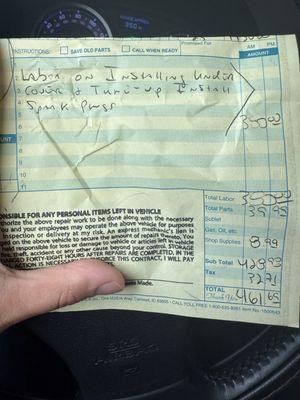 Promised For
INSTRUCTIONS: SAVE OLD PARTS CALL WHEN READY AM PM
AMOUNT
1
Labor on Installing Under
Cover & Tune-up Install
Spark Plugs
350.00
Total Labor 350.00
Total Parts 39.95
Sublet
Gas, Oil, etc.
Shop Supplies 8.99
Sub Total
Tax 32.71
TOTAL 461.65
Thank You
NSIBLE FOR ANY PERSONAL ITEMS LEFT IN VEHICLE
uthorize the above repair work to be done along with the necessary
You and your employees may operate the above vehicle for purposes
inspection or delivery at my risk. An express mechanic's lien is
ged on the above vehicle to secure the amount of repairs thereto. You
held responsible for loss or damage to vehicle or articles left in vehicle
fire, theft, accident or any other cause beyond your control. STORAGE
FORTY-EIGHT HOURS AFTER REPAIRS ARE COMPLETED. IN THE
ACTION IS NECESSARY TO ENFORCE THIS CONTRACT, I WILL PAY
ts Made.
CALL TOLL FREE